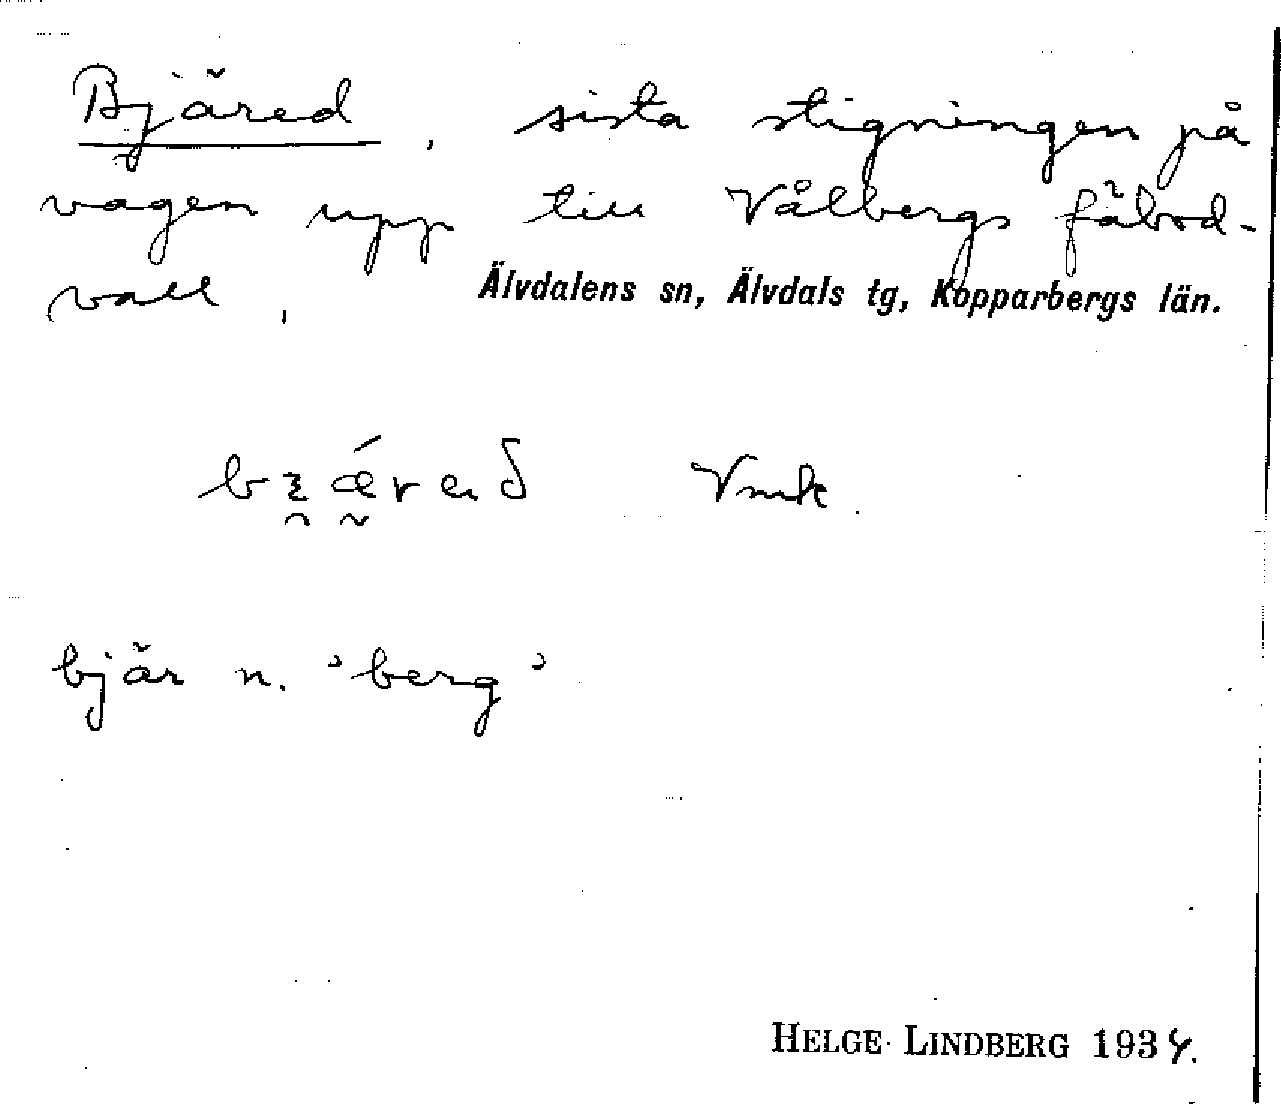 Bjäred, sista stigningen på
vägen upp till Vålbergs fäbod-
vall,
Älvdalens sn, Älvdals tg, Kopparbergs län.
bjär n. 'berg'
HELGE LINDBERG 1934.